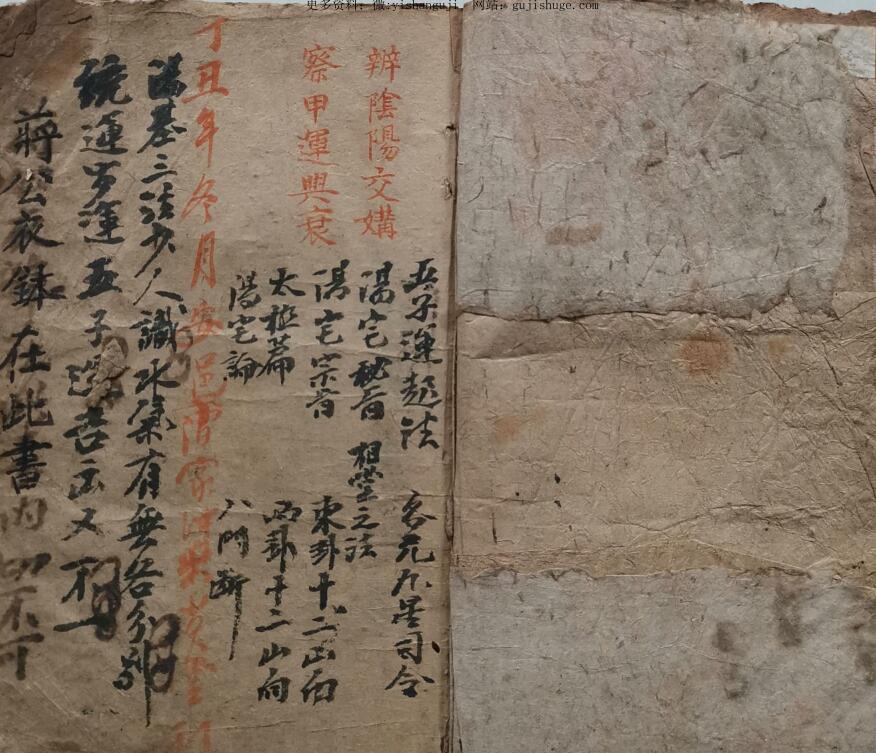 更多资料：微:yishanguji，网站：gujishuge.com
辨陰陽交媾
察甲運興衰
五子運起法
各元九星司令
陽宅秘旨
相堂之法
陽宅宗旨
東卦十二山向
太極篇
西卦十二山向
陽宅論
八門斷
丁丑年冬月安邑
陽基三法少人識水氣有無各分別
統運步運五子運吉凶又不一
蔣公衣鉢在此書內切不可